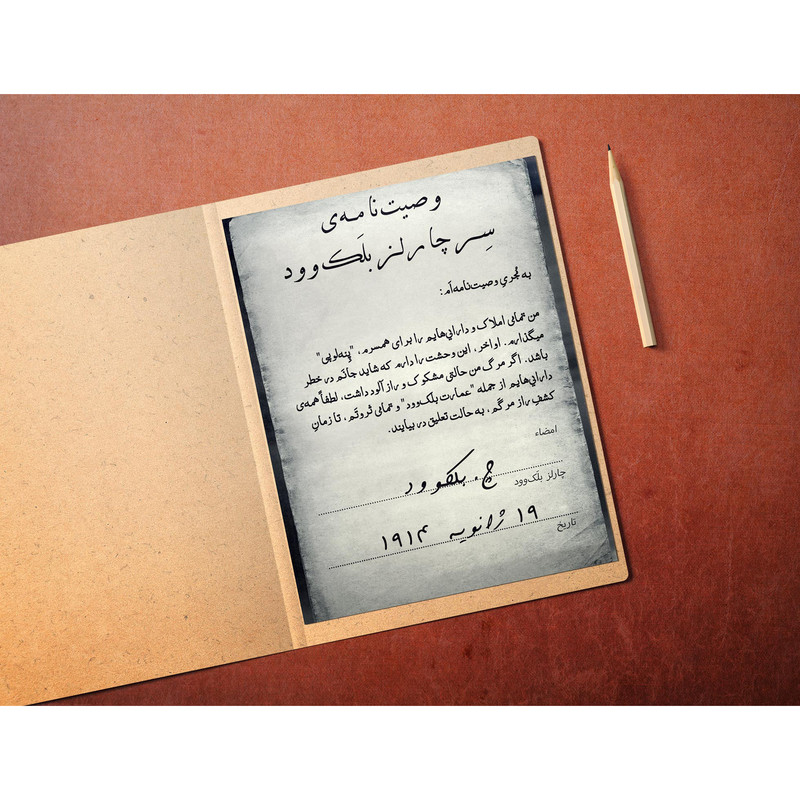 وصیت‌نامه‌ی
سِر چارلز بلَک‌وود
به مُجریِ وصیت‌نامه‌اَم:
من تمامی املاک و دارایی‌هایم را برای همسرم، "پِنه‌لوپی"
میگذارم. اواخر، این وحشت را دارم که شاید جانَم در خطر
باشد. اگر مرگ من حالتی مشکوک و رازآلود داشت، لطفاً همه‌ی
دارایی‌هایم از جمله "عمارت بلک‌وود" و تمامی ثروتَم، تا زمانِ
کشفِ رازِ مرگم، به حالت تعلیق در بیایند.
امضاء
چ. بلکوود
چارلز بلَک‌وود
۱۹ ژانویه ۱۹۱۴
تاریخ